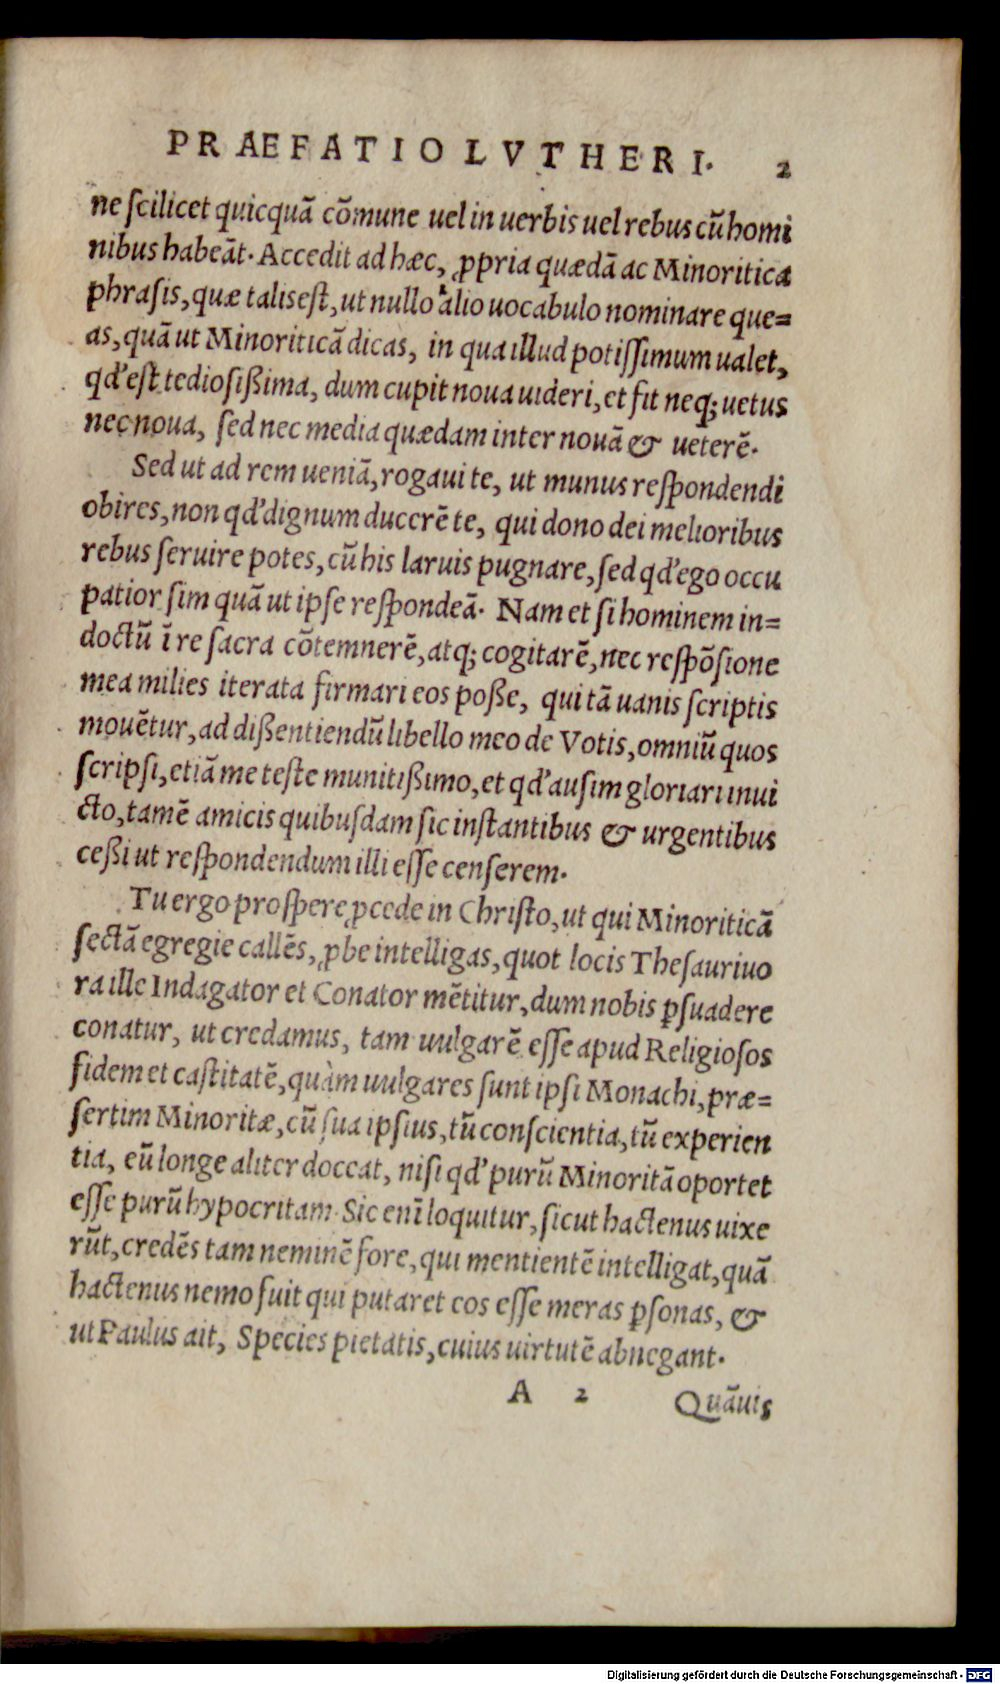 PRAEFATIO LVTHERI. 2
ne ſcilicet quicquā cōmune uel in uerbis uel rebus cū homi
nibus habeāt. Accedit ad hæc, ꝓpria quædā ac Minoritica
phraſis, quæ talis eſt, ut nullo alio uocabulo nominare que=
as, quā ut Minoriticā dicas, in qua illud potiſſimum ualet,
qd' eſt tedioſißima, dum cupit noua uideri, et fit neq; uetus
nec noua, ſed nec media quædam inter nouā & ueterē.
Sed ut ad rem ueniā, rogaui te, ut munus reſpondendi
obires, non qd' dignum ducerē te, qui dono dei melioribus
rebus ſeruire potes, cū his laruis pugnare, ſed qd' ego occu
patior ſim quā ut ipſe reſpondeā. Nam et ſi hominem in=
doctū ī re ſacra cōtemnerē, atq; cogitarē, nec reſpōſione
mea milies iterata firmari eos poße, qui tā uanis ſcriptis
mouētur, ad dißentiendū libello meo de Votis, omniū quos
ſcripſi, etiā me teſte munitißimo, et qd' auſim gloriari inui
cto, tamē amicis quibuſdam ſic inſtantibus & urgentibus
ceßi ut reſpondendum illi eſſe cenſerem.
Tu ergo proſpere ꝓcede in Chriſto, ut qui Minoriticā
ſectā egregie callēs, ꝓbe intelligas, quot locis Theſauriuo
ra ille Indagator et Conator mētitur, dum nobis ꝑſuadere
conatur, ut credamus, tam uulgarē eſſe apud Religioſos
fidem et caſtitatē, quàm uulgares ſunt ipſi Monachi, præ=
ſertim Minoritæ, cū ſua ipſius, tū conſcientia, tū experien
tia, eū longe aliter doceat, niſi qd' purū Minoritā oportet
eſſe purū hypocritam. Sic enī loquitur, ſicut hactenus uixe
rūt, credēs tam neminē fore, qui mentientē intelligat, quā
hactenus nemo fuit qui putaret eos eſſe meras ꝑſonas, &
ut Paulus ait, Species pietatis, cuius uirtutē abnegant.
A 2 Quāuis
Digitalisierung gefördert durch die Deutsche Forschungsgemeinschaft - DFG